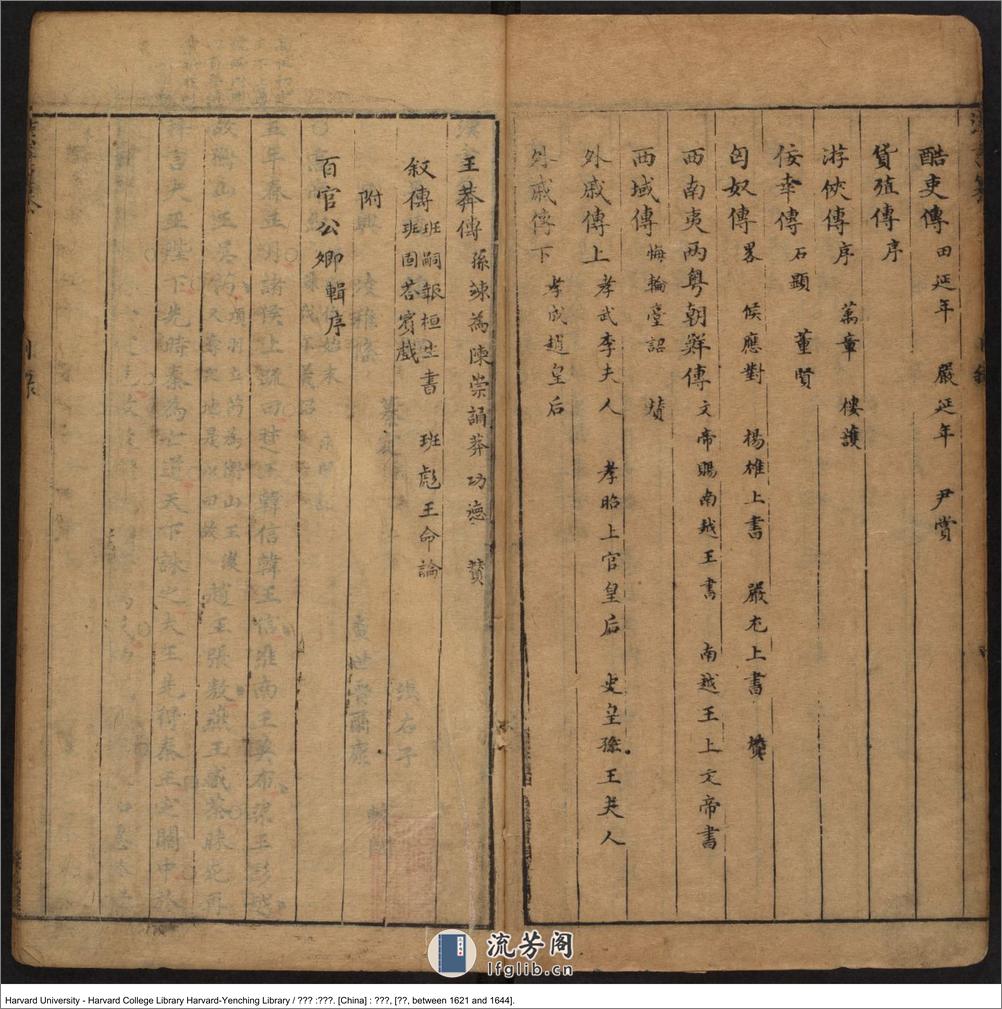 酷吏傳 田延年 嚴延年 尹賞
貨殖傳 序
游俠傳 序 萬章 樓護
佞幸傳 石顯 董賢
匈奴傳 畧 侯應對 楊雄上書 嚴尤上書 贊
西南夷两粤朝鮮傳 文帝賜南越王書 南越王上文帝書
西域傳 悔輪臺詔 贊
外戚傳上 孝武李夫人 孝昭上官皇后 史皇孫王夫人
外戚傳下 孝成趙皇后
王莽傳 孫竦為陳崇誦莽功德 贊
叙傳 班嗣報桓生書 班彪王命論
班固荅賓戲
附
百官公卿輯序
流芳阁
lfglib.cn
Harvard University - Harvard College Library Harvard-Yenching Library / ??? :???. [China] : ???, [??, between 1621 and 1644].